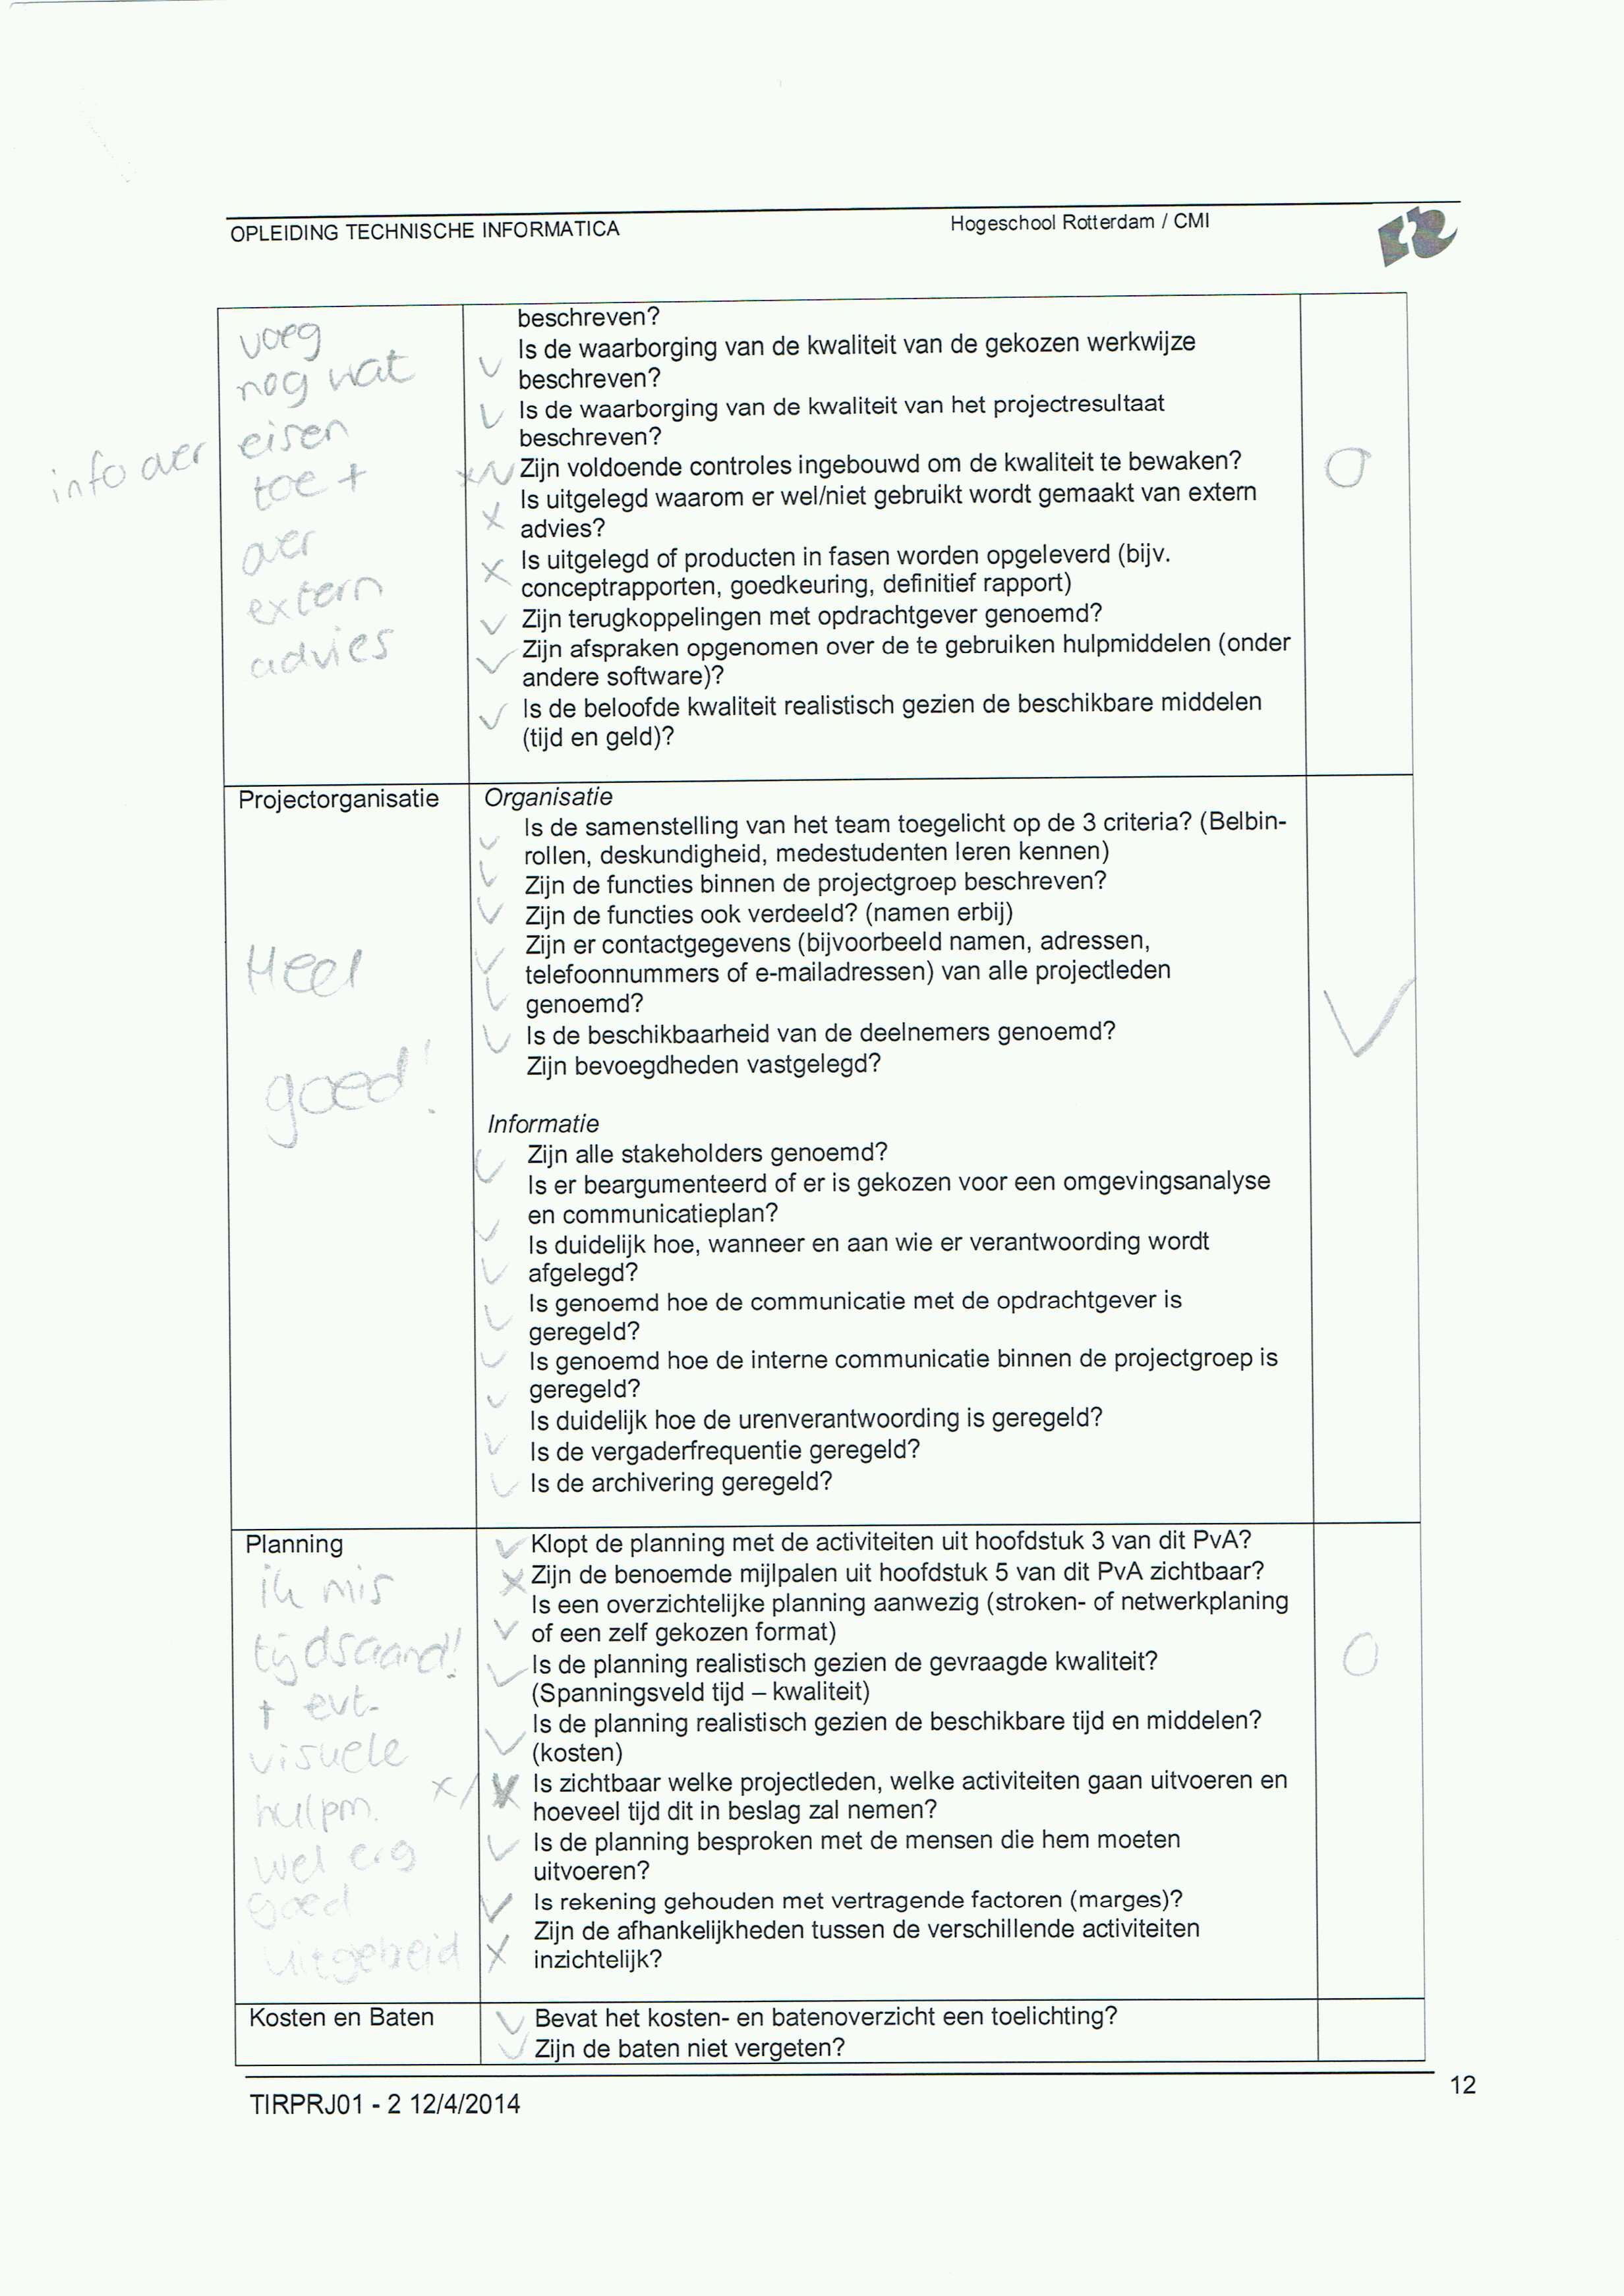 OPLEIDING TECHNISCHE INFORMATICA
Hogeschool Rotterdam / CMI
voeg
nog wat
info over eisen
toe +
over
extern
advies
beschreven?
Is de waarborging van de kwaliteit van de gekozen werkwijze
beschreven?
Is de waarborging van de kwaliteit van het projectresultaat
beschreven?
Zijn voldoende controles ingebouwd om de kwaliteit te bewaken?
Is uitgelegd waarom er wel/niet gebruikt wordt gemaakt van extern
advies?
Is uitgelegd of producten in fasen worden opgeleverd (bijv.
conceptrapporten, goedkeuring, definitief rapport)
Zijn terugkoppelingen met opdrachtgever genoemd?
Zijn afspraken opgenomen over de te gebruiken hulpmiddelen (onder
andere software)?
Is de beloofde kwaliteit realistisch gezien de beschikbare middelen
(tijd en geld)?
Projectorganisatie
Heel
goed!
Organisatie
Is de samenstelling van het team toegelicht op de 3 criteria? (Belbin-
rollen, deskundigheid, medestudenten leren kennen)
Zijn de functies binnen de projectgroep beschreven?
Zijn de functies ook verdeeld? (namen erbij)
Zijn er contactgegevens (bijvoorbeeld namen, adressen,
telefoonnummers of e-mailadressen) van alle projectleden
genoemd?
Is de beschikbaarheid van de deelnemers genoemd?
Zijn bevoegdheden vastgelegd?
Informatie
Zijn alle stakeholders genoemd?
Is er beargumenteerd of er is gekozen voor een omgevingsanalyse
en communicatieplan?
Is duidelijk hoe, wanneer en aan wie er verantwoording wordt
afgelegd?
Is genoemd hoe de communicatie met de opdrachtgever is
geregeld?
Is genoemd hoe de interne communicatie binnen de projectgroep is
geregeld?
Is duidelijk hoe de urenverantwoording is geregeld?
Is de vergaderfrequentie geregeld?
Is de archivering geregeld?
Planning
ik mis
tijdsaand!
+ evt.
visuele
hulpm.
wel erg
goed
uitgebreid
Klopt de planning met de activiteiten uit hoofdstuk 3 van dit PvA?
Zijn de benoemde mijlpalen uit hoofdstuk 5 van dit PvA zichtbaar?
Is een overzichtelijke planning aanwezig (stroken- of netwerkplaning
of een zelf gekozen format)
Is de planning realistisch gezien de gevraagde kwaliteit?
(Spanningsveld tijd – kwaliteit)
Is de planning realistisch gezien de beschikbare tijd en middelen?
(kosten)
Is zichtbaar welke projectleden, welke activiteiten gaan uitvoeren en
hoeveel tijd dit in beslag zal nemen?
Is de planning besproken met de mensen die hem moeten
uitvoeren?
Is rekening gehouden met vertragende factoren (marges)?
Zijn de afhankelijkheden tussen de verschillende activiteiten
inzichtelijk?
Kosten en Baten
Bevat het kosten- en batenoverzicht een toelichting?
Zijn de baten niet vergeten?
12
TIRPRJ01 - 2 12/4/2014